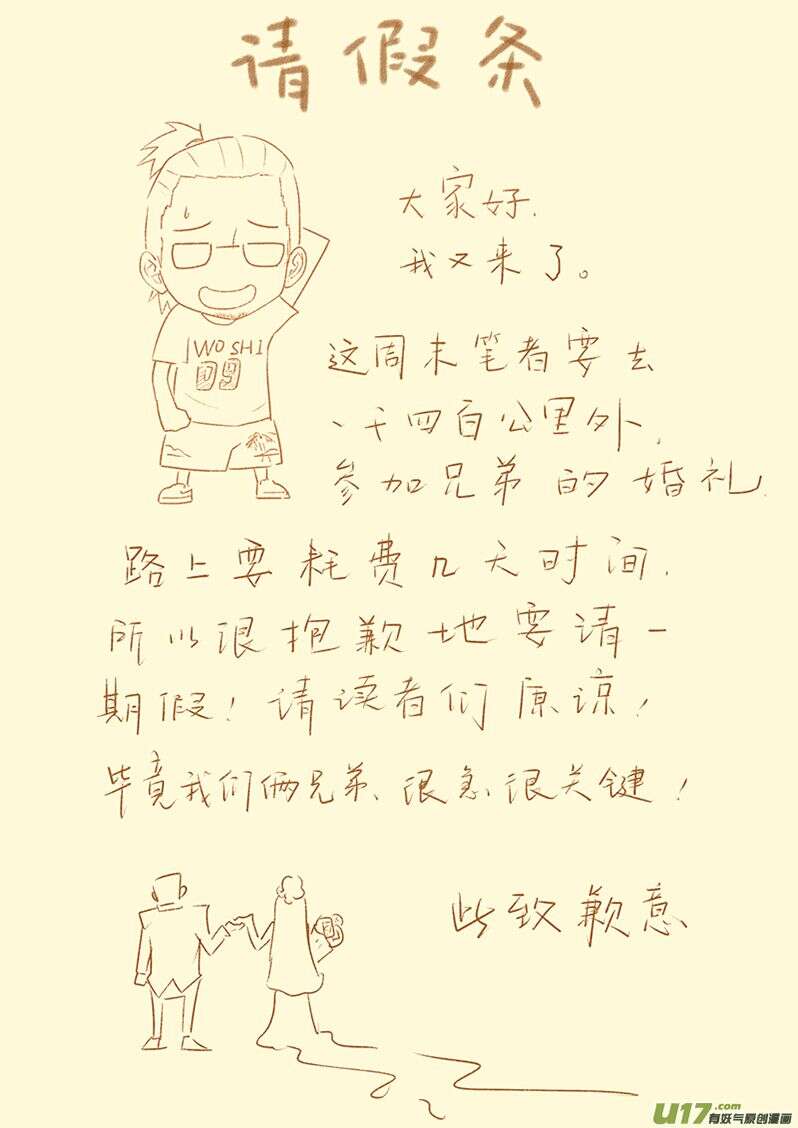 请假条
大家好，
我又来了。
WOSHI
09
这周末笔者要去
一千四百公里外，
参加兄弟的婚礼，
路上要耗费几天时间，
所以很抱歉地要请一
期假！请读者们原谅！
毕竟我们俩兄弟、很急很关键！
此致歉意
U17.com
有妖气原创漫画